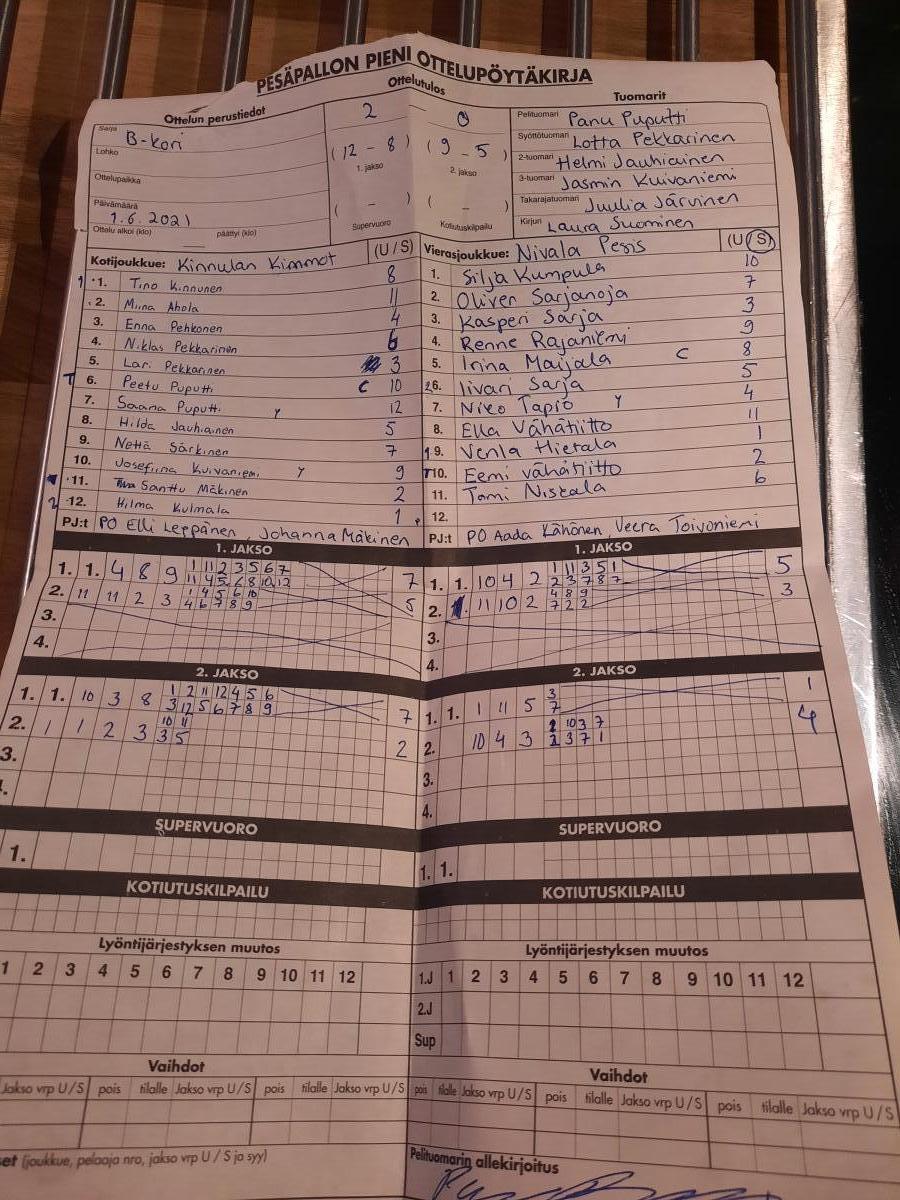 PESÄPALLON PIENI OTTELUPÖYTÄKIRJA
Ottelun perustiedot
Sarja B-kori
Lohko
Ottelupaikka
Päivämäärä 1.6.2021
Ottelu alkoi (klo) päättyi (klo)
Ottelutulos
2 0
(12 - 8) (9 - 5)
1. jakso 2. jakso
( - ) ( - )
Supervuoro Kotiutuskilpailu
Tuomarit
Pelituomari Panu Puputti
Syöttötuomari Lotta Pekkarinen
2-tuomari Helmi Jauhiainen
3-tuomari Jasmin Kuivaniemi
Takarajatuomari Juulia Järvinen
Kirjuri Laura Suominen
Kotijoukkue: Kinnulan Kimmot (U / S)
1. Tino Kinnunen 8
2. Miina Ahola 11
3. Enna Pehkonen 4
4. Niklas Pekkarinen 6
5. Lari Pekkarinen 3
6. Peetu Puputti C 10
7. Saana Puputti Y 12
8. Hilda Jauhiainen 5
9. Netta Särkinen 7
10. Josefiina Kuivaniemi Y 9
11. Santtu Mäkinen 2
12. Hilma Kulmala 1
PJ:t PO Elli Leppänen, Johanna Mäkinen
Vierasjoukkue: Nivala Pesis (U / S)
1. Silja Kumpula 10
2. Oliver Sarjanoja 7
3. Kasperi Sarja 3
4. Renne Rajaniemi 9
5. Irina Maijala C 8
6. Iivari Sarja 5
7. Niko Tapio Y 4
8. Ella Vähätiitto 11
9. Venla Hietala 1
10. Eemi Vähätiitto 2
11. Tomi Niskala 6
12.
PJ:t PO Aada Kähönen, Veera Toivoniemi
1. JAKSO
1. 1. 4 8 9 1 11 2 3 5 6 7 7
11 4 5 6 8 10 12
2. 11 11 2 3 1 4 5 6 10 5
4 6 7 8 9
3.
4.
1. JAKSO
1. 1. 10 4 2 1 11 3 5 1 5
2 3 7 8 7
2. 11 10 2 4 8 9 3
7 2 2
3.
4.
2. JAKSO
1. 1. 10 3 8 1 2 11 12 4 5 6 7
3 12 5 6 7 8 9
2. 1 1 2 3 10 11 2
3 5
3.
2. JAKSO
1. 1. 1 11 5 3 1
7
2. 10 4 3 2 10 3 7 4
2 3 7 1
3.
4.
SUPERVUORO
1.
SUPERVUORO
1. 1.
KOTIUTUSKILPAILU
KOTIUTUSKILPAILU
Lyöntijärjestyksen muutos
1 2 3 4 5 6 7 8 9 10 11 12
Lyöntijärjestyksen muutos
1.J 1 2 3 4 5 6 7 8 9 10 11 12
2.J
Sup
Vaihdot
Jakso vrp U / S pois tilalle Jakso vrp U / S pois tilalle Jakso vrp U / S
Vaihdot
pois tilalle Jakso vrp U / S pois tilalle Jakso vrp U / S pois tilalle Jakso vrp U / S
set (joukkue, pelaaja nro, jakso vrp U / S ja syy)
Pelituomarin allekirjoitus